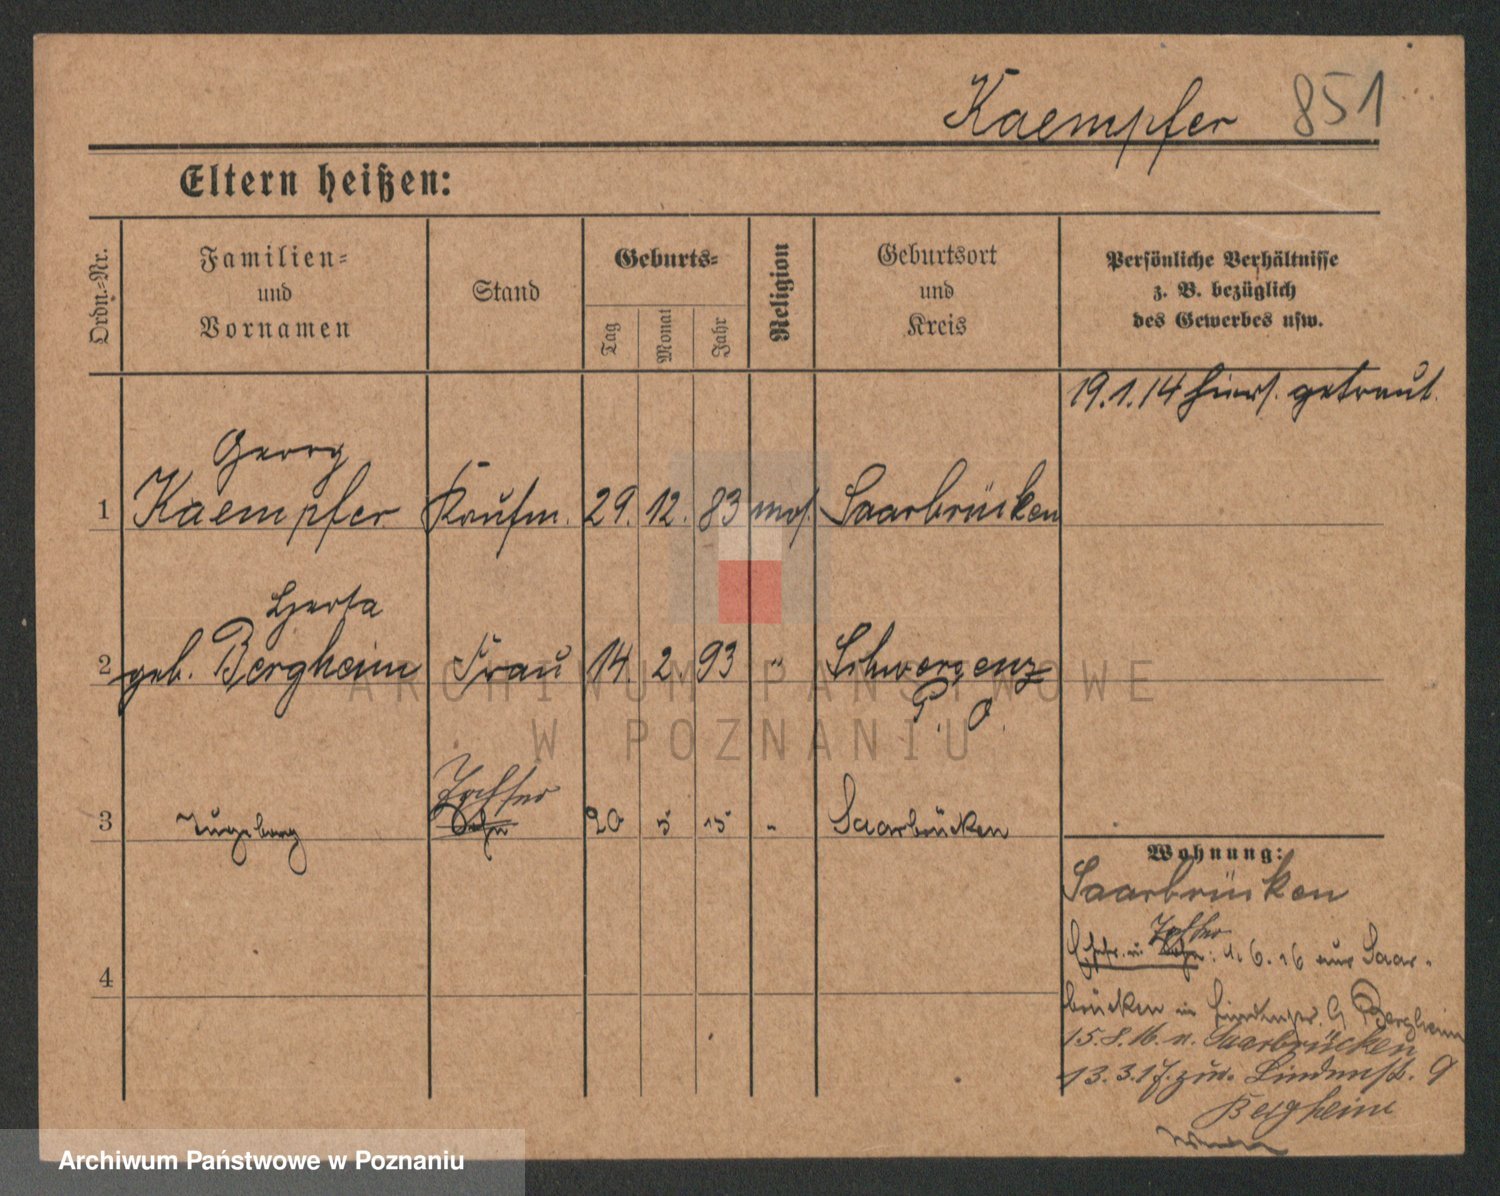 Kaempfer 851
Eltern heißen:
Ordn.-Nr.
Familien- und Vornamen
Stand
Geburts-
Tag
Monat
Jahr
Religion
Geburtsort und Kreis
Persönliche Verhältnisse
z. B. bezüglich
des Gewerbes usw.
19.1.14 hiers. getraut.
Georg
1 Kaempfer Kaufm. 29. 12. 83 mos. Saarbrücken
Herta
2 geb. Bergheim Frau 14 2. 93 " Schwersenz
P. O.
Tochter
3 Ingeborg Sohn 20 5 15 " Saarbrücken
Wohnung:
Saarbrücken
Tochter
Ehefr. u. Sohn: 1. 6. 16 aus Saar-
brücken in Lindenstr. 9 Bergheim
15.8.16. n. Saarbrücken
13.3.17. zur. Lindenstr. 9
Bergheim
4
ARCHIWUM PAŃSTWOWE
W POZNANIU
Archiwum Państwowe w Poznaniu